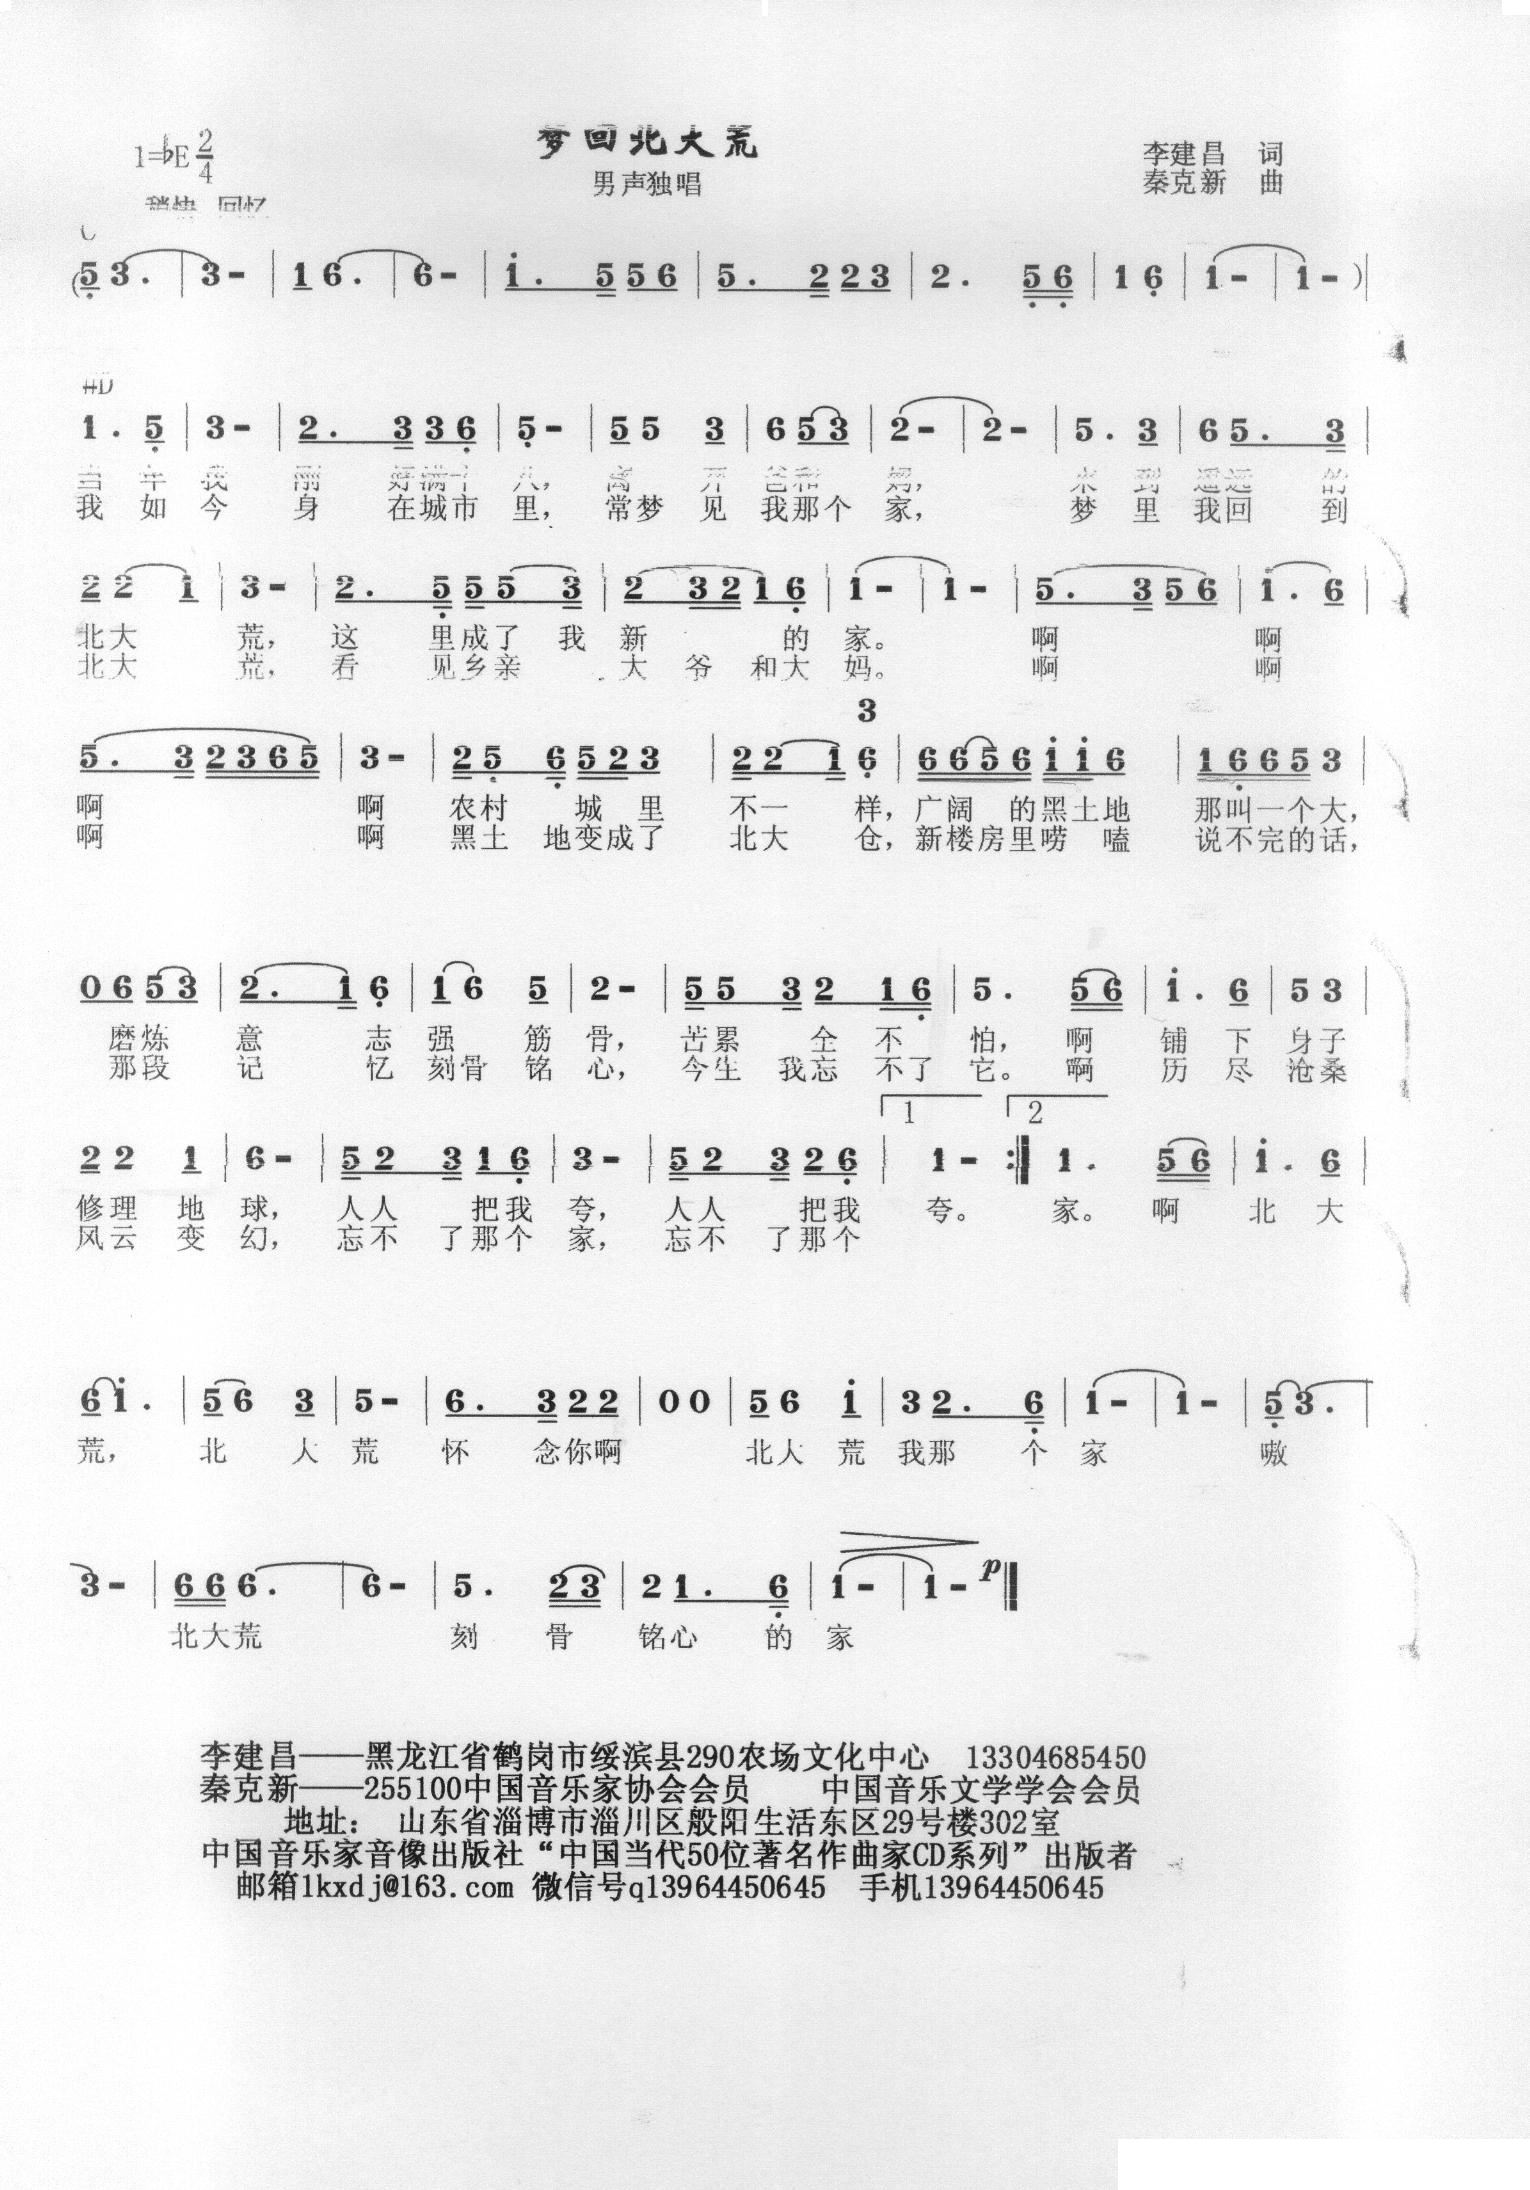 梦回北大荒
1=♭E 2/4
男声独唱
李建昌 词
秦克新 曲
稍快 回忆
C
(5 3. | 3 - | 1 6. | 6 - | i. 5 5 6 | 5. 2 2 3 | 2. 5 6 | 1 6 | 1 - | 1 - )|
#D
1. 5 | 3 - | 2. 3 3 6 | 5 - | 5 5 3 | 6 5 3 | 2 - | 2 - | 5. 3 | 6 5. 3 |
当年我刚好满十八,离开爸和妈,来到遥远的
我如今身在城市里,常梦见我那个家,梦里我回到
2 2 1 | 3 - | 2. 5 5 5 3 | 2 3 2 1 6 | 1 - | 1 - | 5. 3 5 6 | 1. 6 |
北大荒,这里成了我新的家。啊啊
北大荒,看见乡亲大爷和大妈。啊啊
3
5. 3 2 3 6 5 | 3 - | 2 5 6 5 2 3 | 2 2 1 6 | 6 6 5 6 i i 6 | 1 6 6 5 3 |
啊啊农村城里不一样,广阔的黑土地那叫一个大,
啊啊黑土地变成了北大仓,新楼房里唠嗑说不完的话,
0 6 5 3 | 2. 1 6 | 1 6 5 | 2 - | 5 5 3 2 1 6 | 5. 5 6 | i. 6 | 5 3 |
磨炼意志强筋骨,苦累全不怕,啊铺下身子
那段记忆刻骨铭心,今生我忘不了它。啊历尽沧桑
1 2
2 2 1 | 6 - | 5 2 3 1 6 | 3 - | 5 2 3 2 6 | 1 - :| 1. 5 6 | i. 6 |
修理地球,人人把我夸,人人把我夸。家。啊北大
风云变幻,忘不了那个家,忘不了那个
6 i. | 5 6 3 | 5 - | 6. 3 2 2 | 0 0 | 5 6 i | 3 2. 6 | 1 - | 1 - | 5 3. |
荒,北大荒怀念你啊北大荒我那个家嗷
3 - | 6 6 6. | 6 - | 5. 2 3 | 2 1. 6 | 1 - | 1 - p ‖
北大荒刻骨铭心的家
李建昌——黑龙江省鹤岗市绥滨县290农场文化中心 13304685450
秦克新——255100中国音乐家协会会员 中国音乐文学学会会员
地址: 山东省淄博市淄川区般阳生活东区29号楼302室
中国音乐家音像出版社“中国当代50位著名作曲家CD系列”出版者
邮箱lkxdj@163.com 微信号q13964450645 手机13964450645